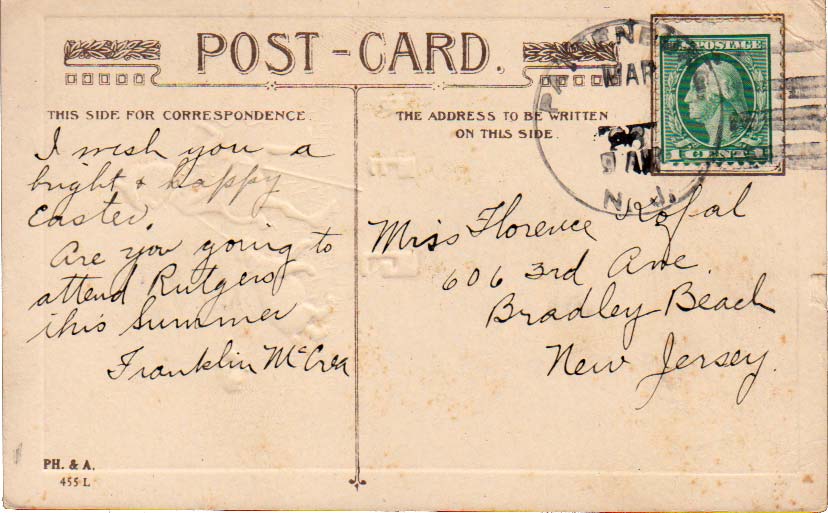 POST-CARD.
THIS SIDE FOR CORRESPONDENCE.
I wish you a
bright & happy
Easter.
Are you going to
attend Rutgers
this Summer
Franklin McCrea
PH. & A.
455 L
THE ADDRESS TO BE WRITTEN
ON THIS SIDE.
MAR
9 AM
N.J.
U.S. POSTAGE
1 CENT 1
Miss Florence
606 3rd Ave.
Bradley Beach
New Jersey.